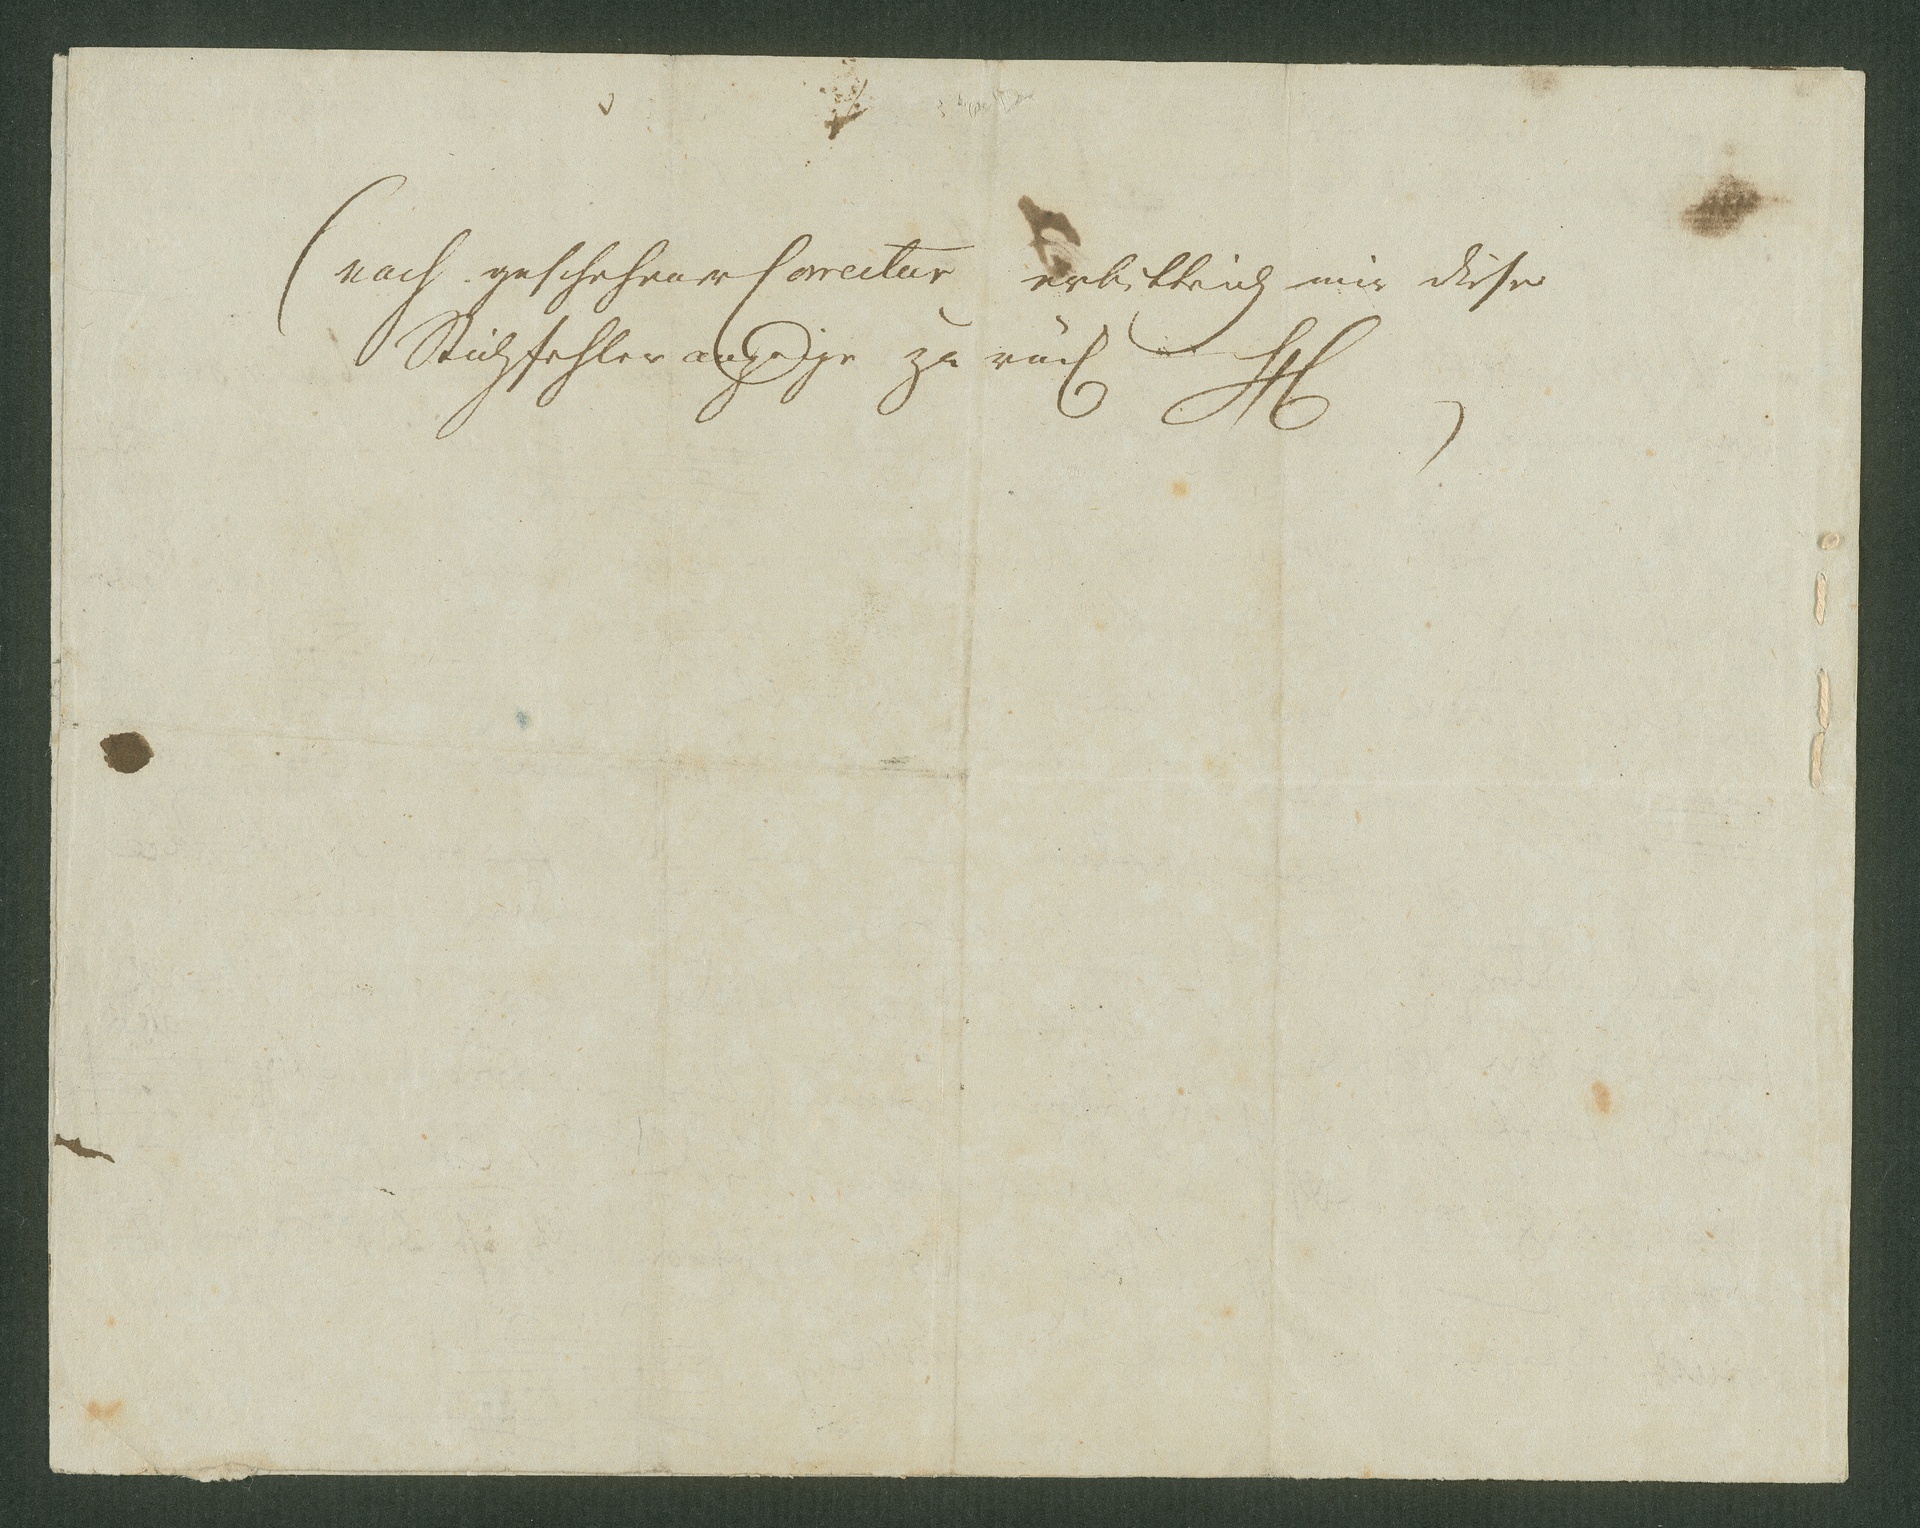 (nach geschehener Correctur erbitt ich mir diese
Stichfehler anzeige zurück H)